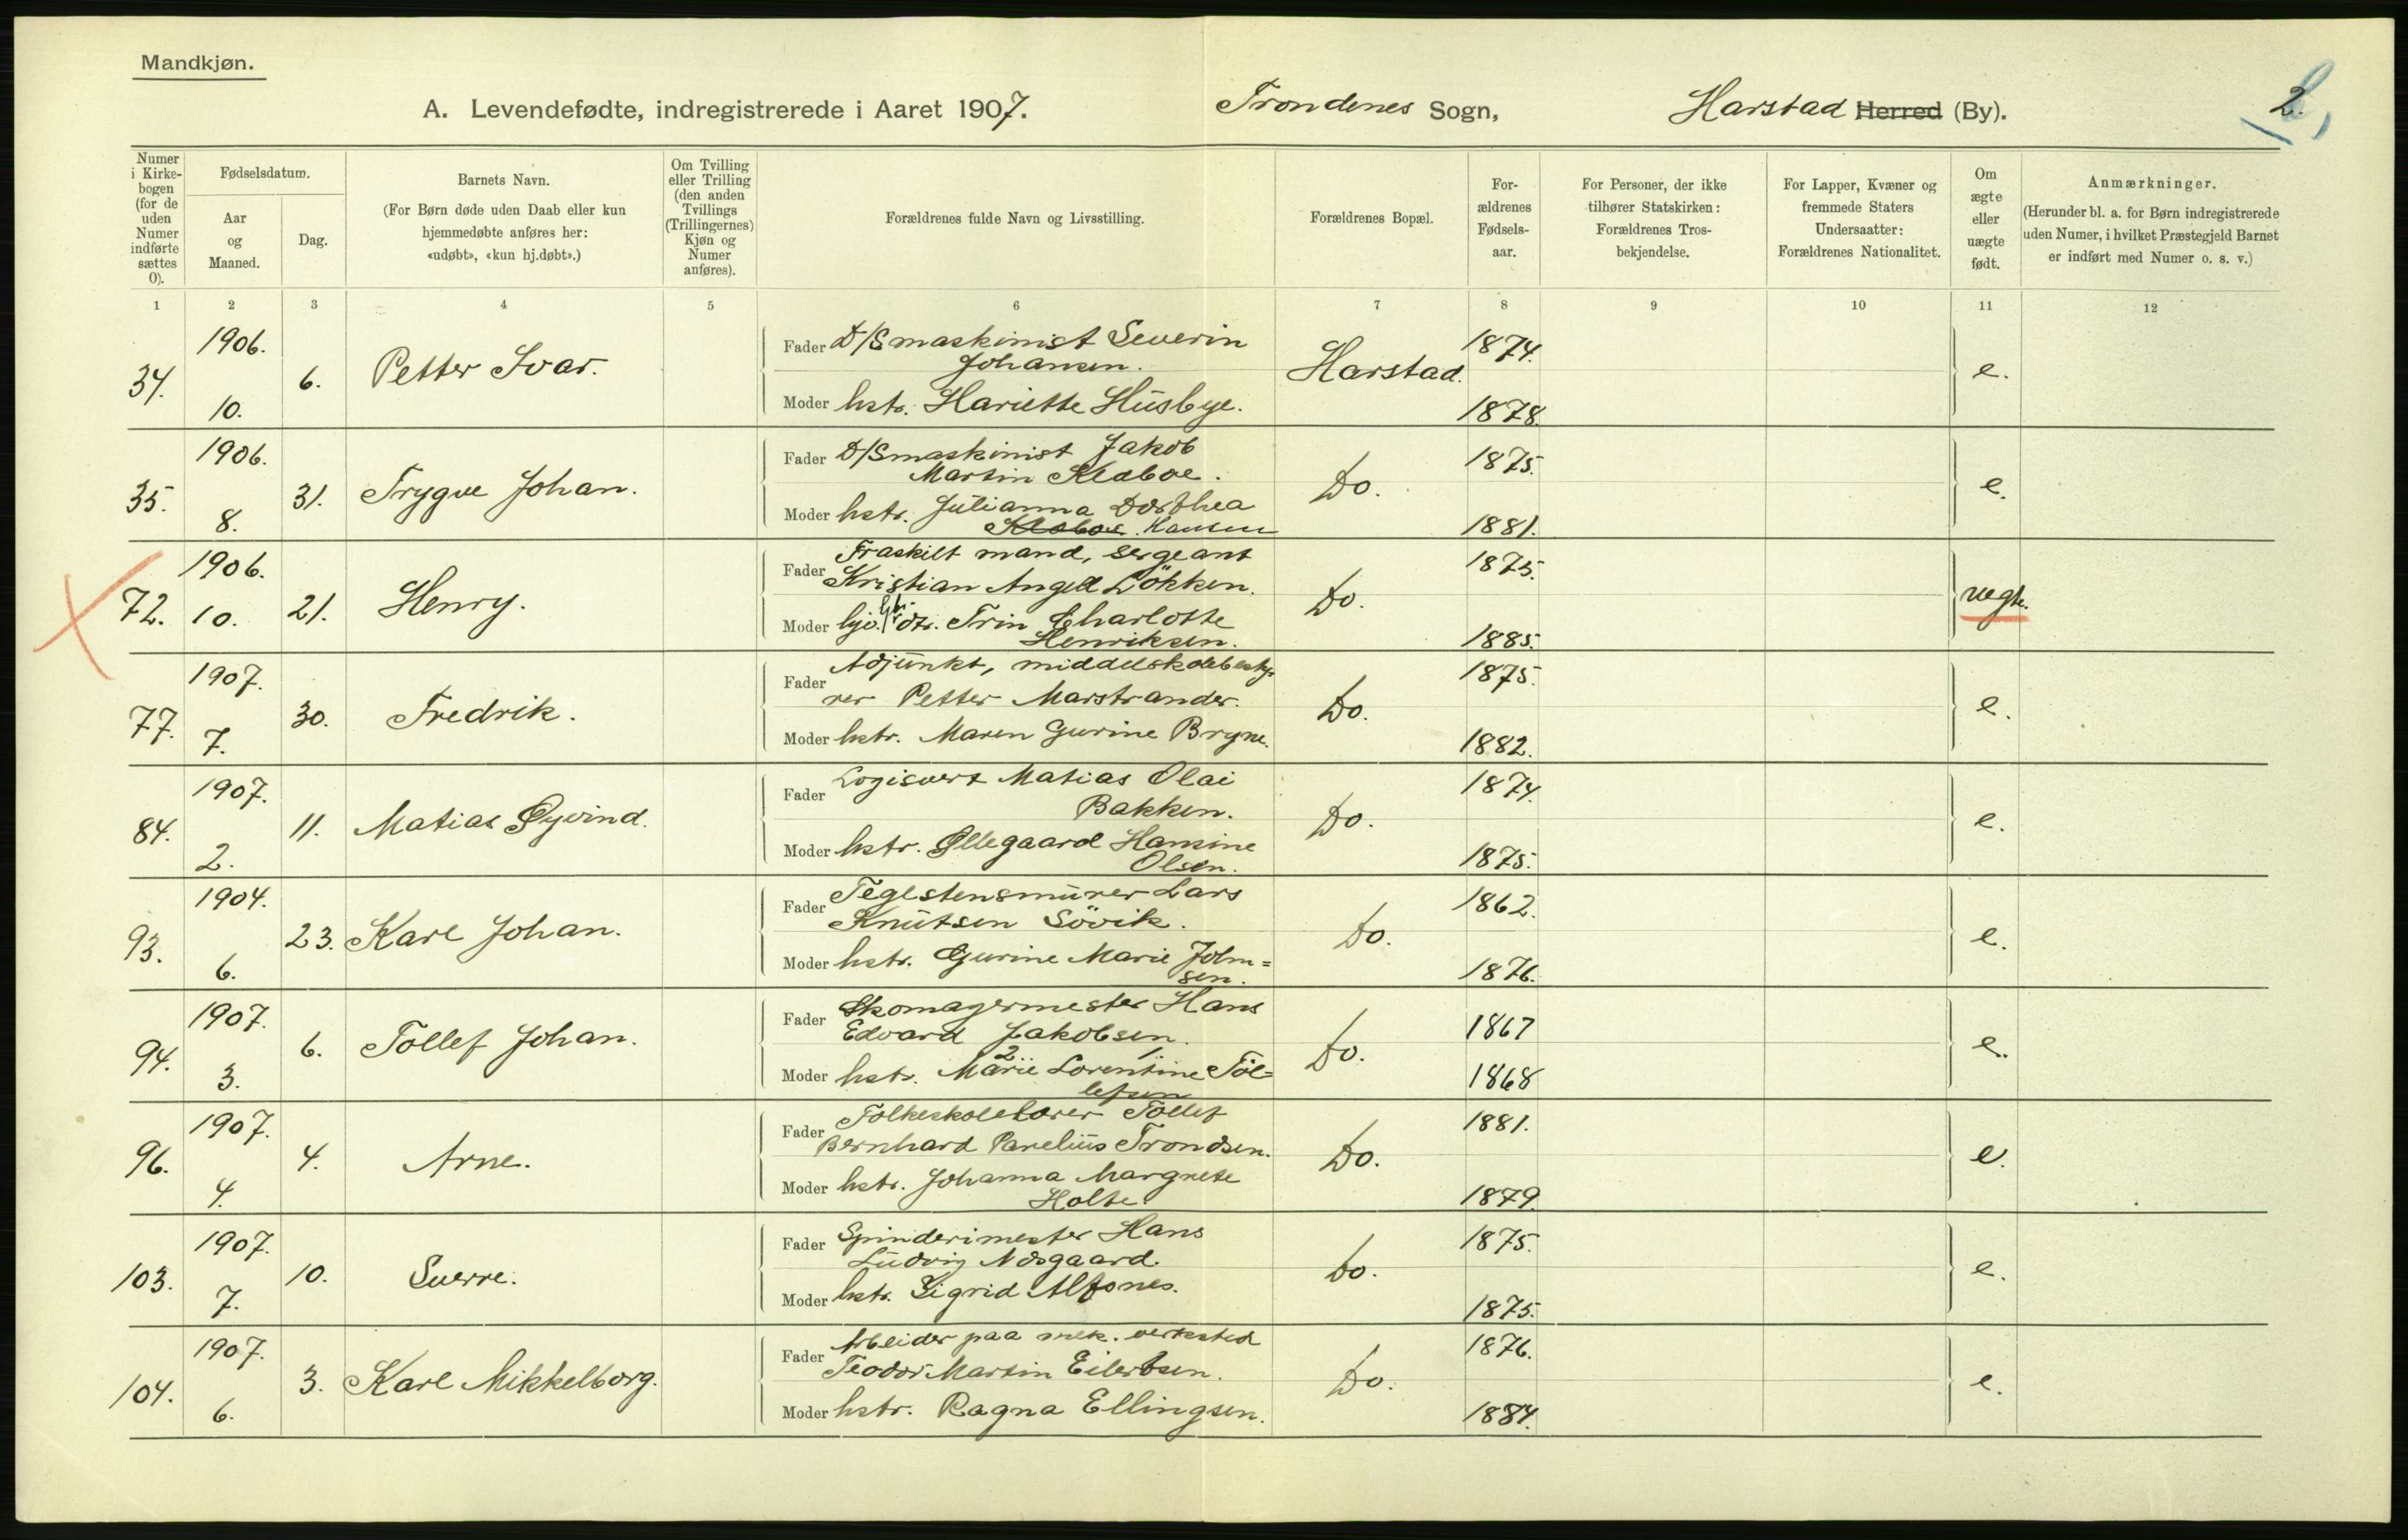 Mandkjøn.
A. Levendefødte, indregistrerede i Aaret 1907. Trondenes Sogn, Harstad Herred (By). 2.
Numer i Kirkebogen (for de uden Numer indførte sættes 0).
Fødselsdatum.
Aar og Maaned.
Dag.
Barnets Navn.
(For Børn døde uden Daab eller kun hjemmedøbte anføres her: «udøbt», «kun hj.døbt».)
Om Tvilling eller Trilling (den anden Tvillings (Trillingernes) Kjøn og Numer anføres).
Forældrenes fulde Navn og Livsstilling.
Forældrenes Bopæl.
Forældrenes Fødselsaar.
For Personer, der ikke tilhører Statskirken: Forældrenes Trosbekjendelse.
For Lapper, Kvæner og fremmede Staters Undersaatter: Forældrenes Nationalitet.
Om ægte eller uægte født.
Anmærkninger.
(Herunder bl. a. for Børn indregistrerede uden Numer, i hvilket Præstegjeld Barnet er indført med Numer o. s. v.)
1 2 3 4 5 6 7 8 9 10 11 12
34. 1906. 10. 6. Petter Ivar.
Fader D/Smaskinist Severin
Johansen. Harstad. 1874. e.
Moder hstr. Hariette Husbye. 1878.
35. 1906. 8. 31. Trygve Johan.
Fader D/Smaskinist Jakob
Martin Klaboe. Do. 1875. e.
Moder hstr. Julianna Dorthea
Klaboe. Hansen 1881.
72. 1906. 10. 21. Henry.
Fraskilt mand, sergeant
Fader Kristian Angel Lökken. Do. 1875. uegte.
Moder Trin Charlotte
Henriksen. 1885.
77. 1907. 7. 30. Fredrik.
Adjunkt, middelskolebesty-
Fader rer Petter Marstrander. Do. 1875. e.
Moder hstr. Maren Gurine Bryne. 1882.
84. 1907. 2. 11. Matias Øyvind.
Fader Logisvert Matias Olai
Bakken. Do. 1874. e.
Moder hstr. Ollegaard Hansine
Olsen. 1875.
93. 1904. 6. 23. Karl Johan.
Fader Teglstensmurer Lars
Knutsen Sövik. Do. 1862. e.
Moder hstr. Gurine Marie John=
sen. 1876.
94. 1907. 3. 6. Tollef Johan.
Fader Skomagermester Hans
Edvard Jakobsen. Do. 1867 e.
2. 1
Moder hstr. Marie Lorentine Tol=
lefsen 1868
96. 1907. 4. 4. Arne.
Folkeskolelærer Tollef
Fader Bernhard Parelius Trondsen. Do. 1881. e.
Moder hstr. Johanna Margrete
Holte. 1879.
103. 1907. 7. 10. Sverre.
Fader Spinderimester Hans
Ludvig Nosgaard. Do. 1875. e.
Moder hstr. Sigrid Alfsnes. 1875.
104. 1907. 6. 3. Karl Mikkelborg.
Arbeider paa mek. verksted
Fader Teodor Martin Eilertsen. Do. 1876. e.
Moder hstr. Ragna Ellingsen. 1884.